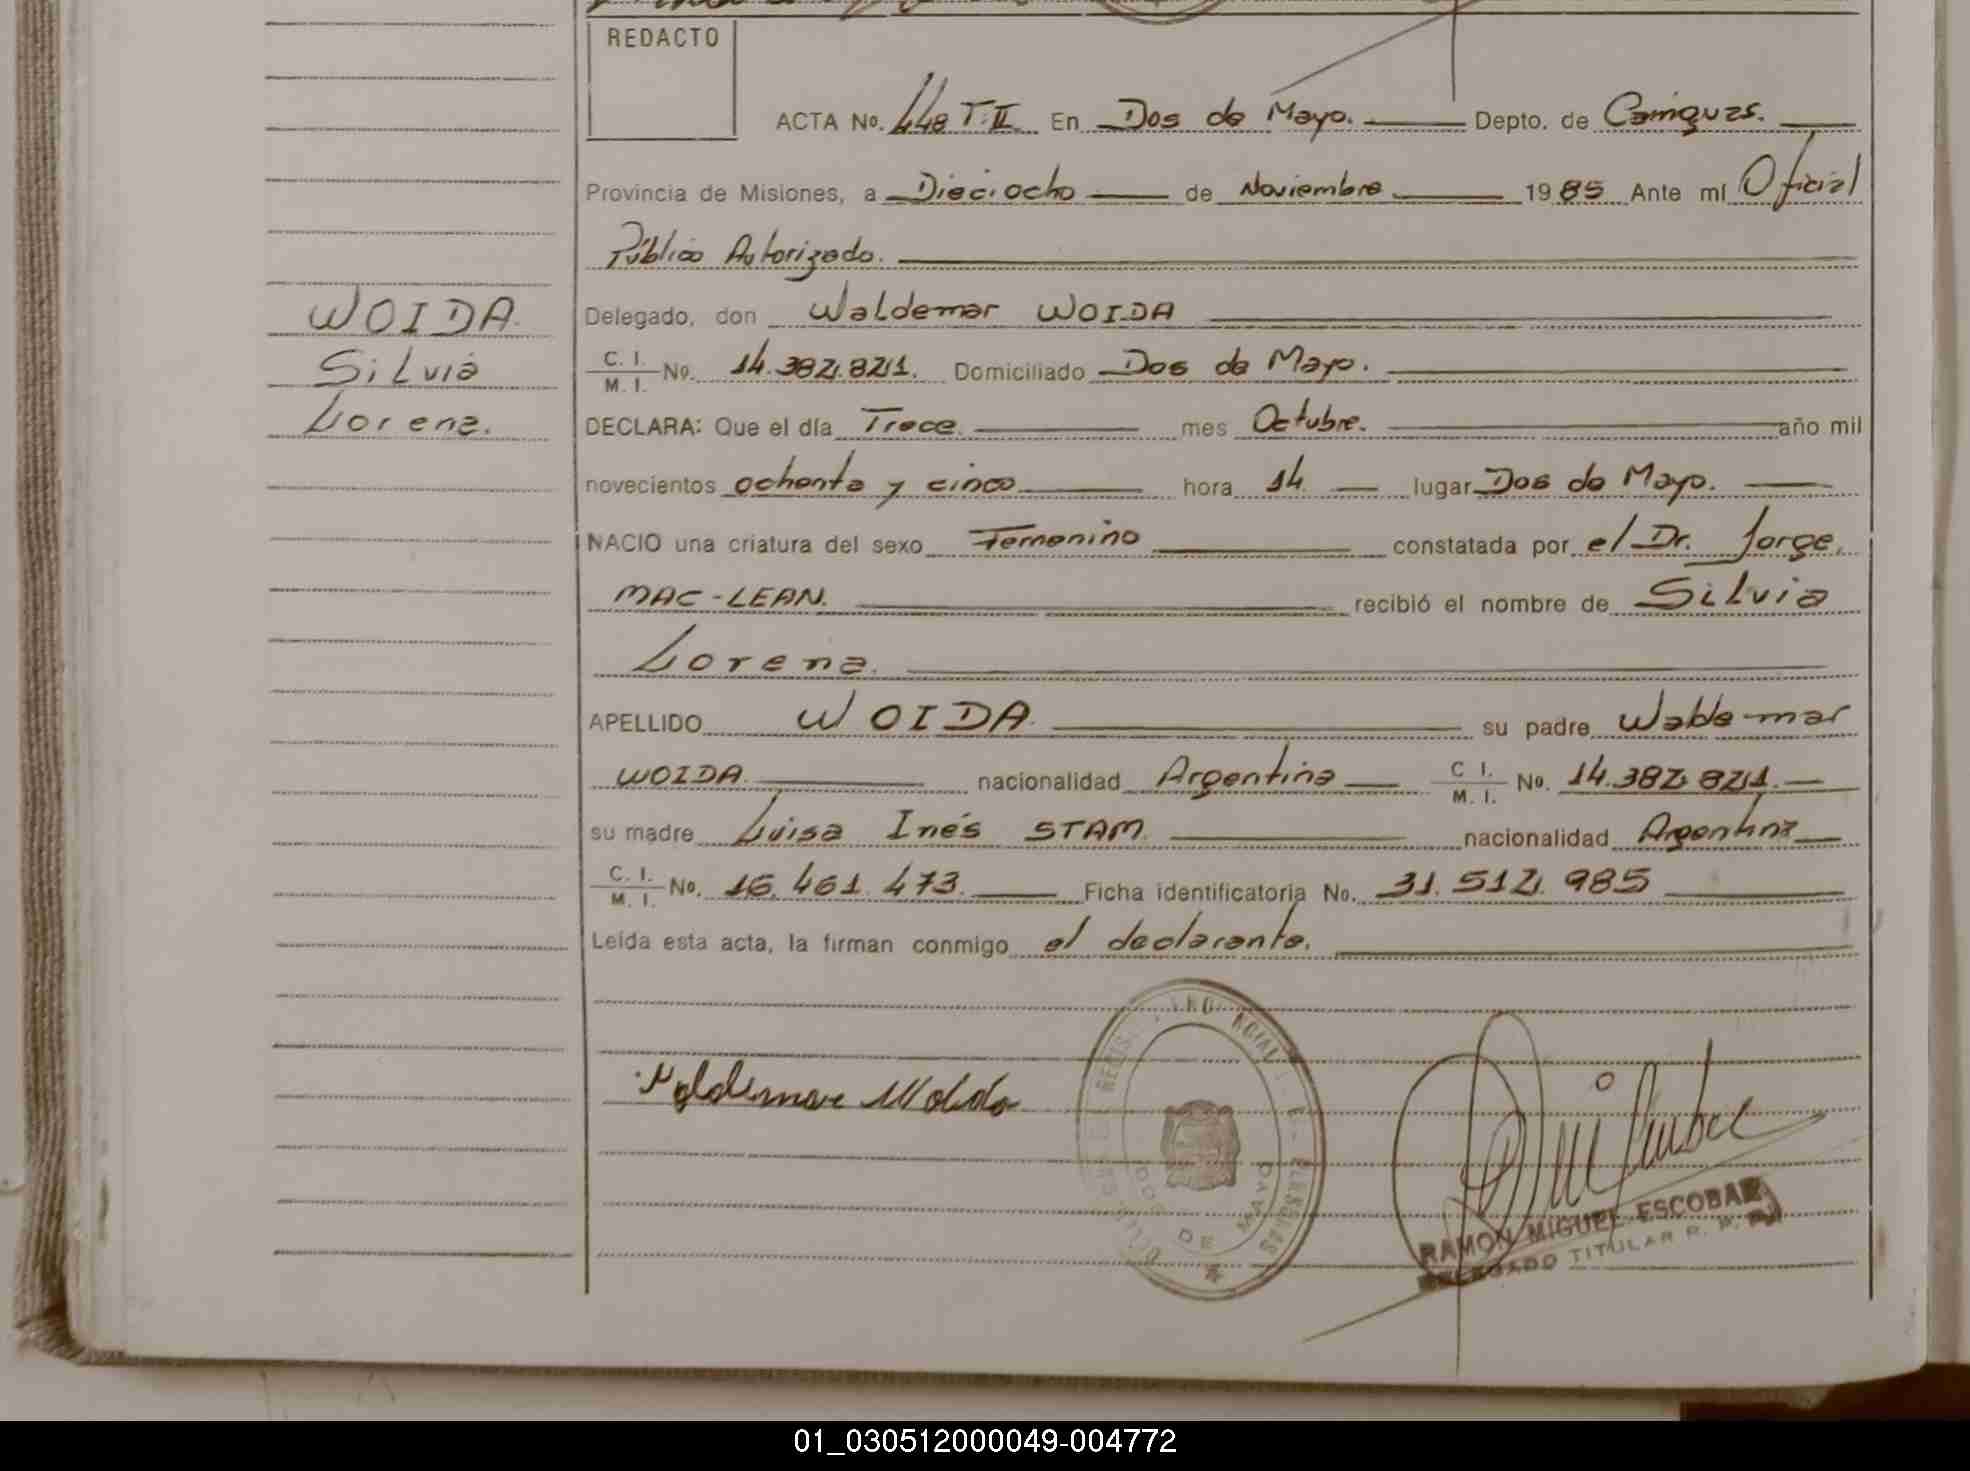 REDACTO
ACTA No. 448 T:II En Dos de Mayo. Depto. de Cainguas.
Provincia de Misiones, a Dieciocho de Noviembre 1985 Ante mí Oficial
Público Autorizado.
WOIDA. Delegado, don Waldemar WOIDA
Silvia C. I. / M. I. No. 14.382.821. Domiciliado Dos de Mayo.
Lorena. DECLARA: Que el día Trece. mes Octubre. año mil
novecientos ochenta y cinco hora 14 lugar Dos de Mayo.
NACIO una criatura del sexo Femenino constatada por el Dr. Jorge
MAC-LEAN. recibió el nombre de Silvia
Lorena.
APELLIDO WOIDA. su padre Waldemar
WOIDA. nacionalidad Argentina C I. / M. I. No. 14.382.821.
su madre Luisa Inés STAM. nacionalidad Argentina
C. I. / M. I. No. 16.461.473. Ficha identificatoria No. 31.512.985
Leída esta acta, la firman conmigo el declarante.
Waldemar Woida
DOS DE MAYO
RAMON MIGUEL ESCOBAR
DELEGADO TITULAR R.
01_030512000049-004772